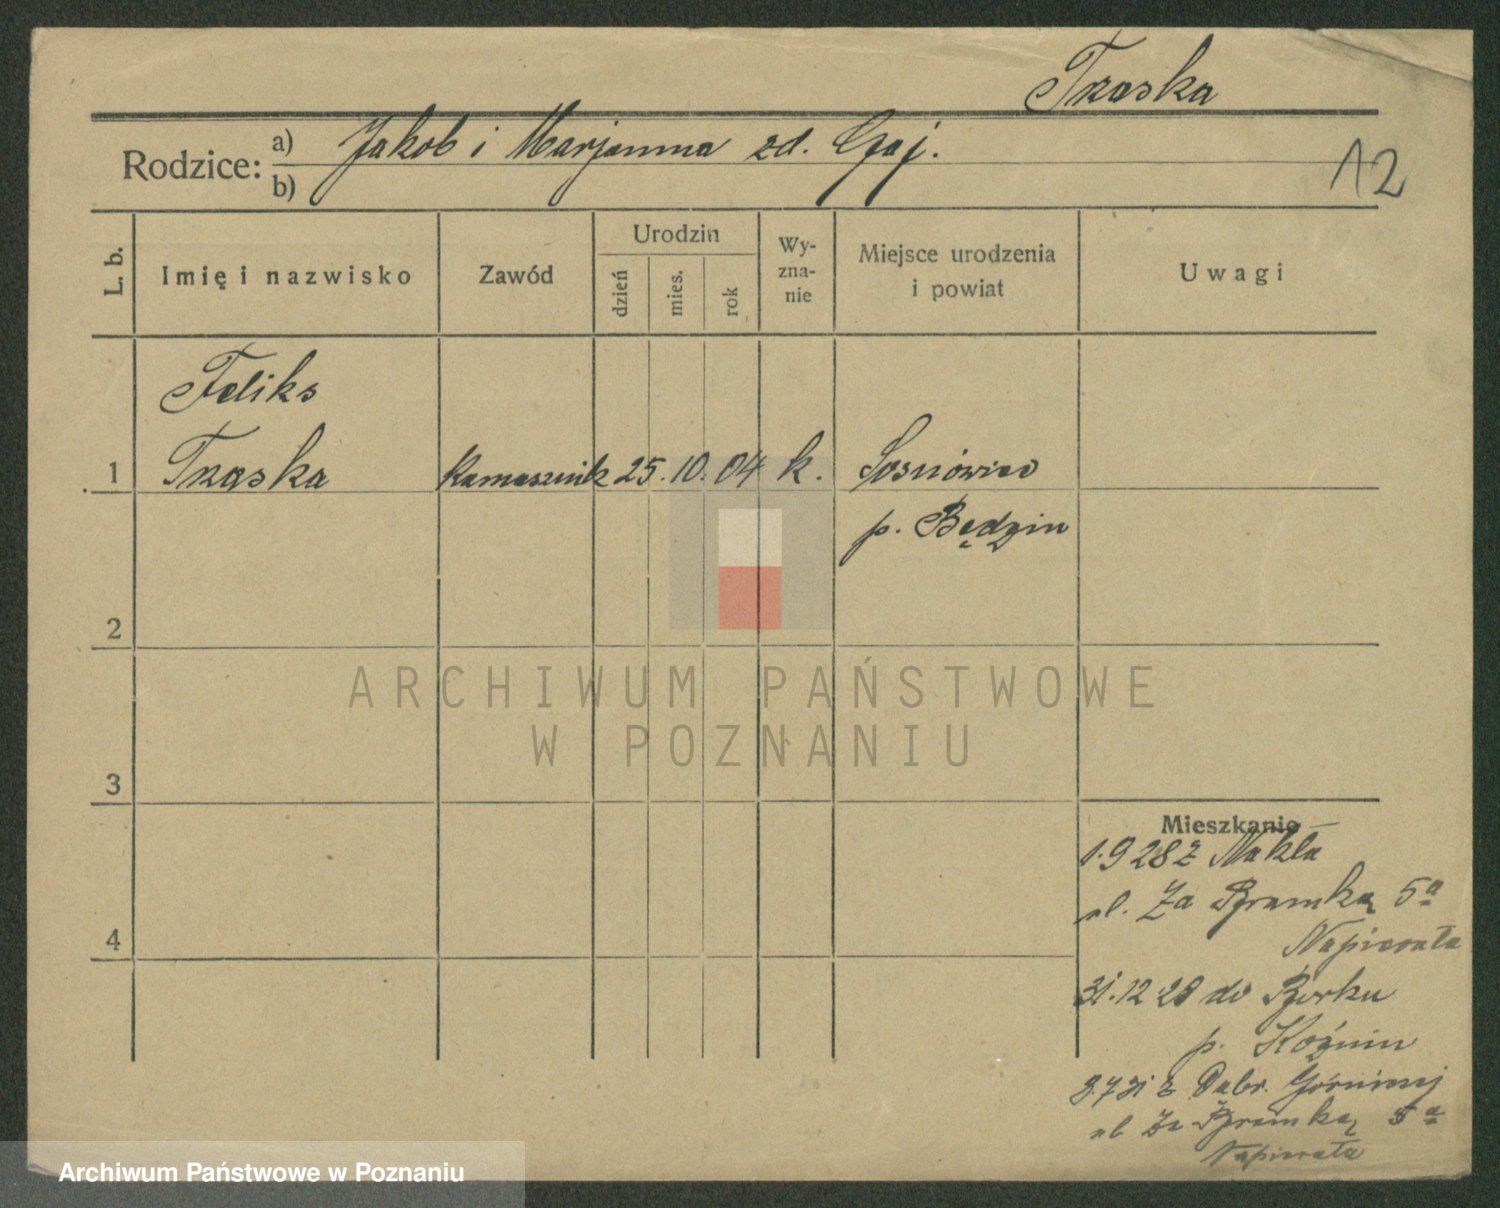 Trzaska
Rodzice: a) Jakob i Marjanna zd. Gaj.
b)
12
L. b.
Imię i nazwisko
Zawód
Urodzin
dzień
mies.
rok
Wy-
zna-
nie
Miejsce urodzenia
i powiat
Uwagi
Feliks
1 Trzaska kamasznik 25. 10. 04 k. Sosnówiec
p. Będzin
2
3
4
ARCHIWUM PAŃSTWOWE
W POZNANIU
Mieszkanie
1.9 28 z Nakła
ul. Za Bramką 5a
Napierała
31.12 28 do Borku
p. Koźmin
3.7 31 z Dąbr. Górniczej
ul Za Bramką 5a
Napierała
Archiwum Państwowe w Poznaniu